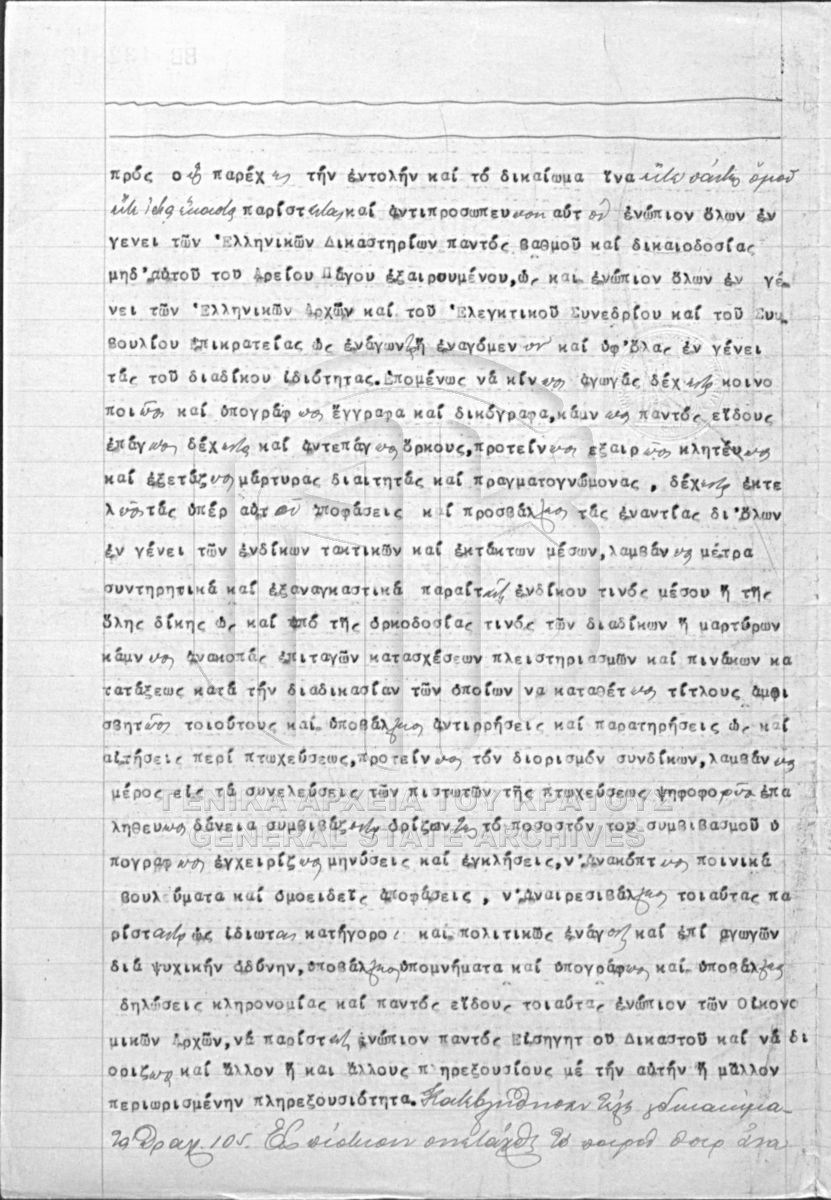 πρός οὓς παρέχει τήν ἐντολήν καί τό δικαίωμα ἵνα εἴτε πάντες ὁμοῦ
εἴτε εἷς ἕκαστος παρίστανται καί ἀντιπροσωπεύουσι αὐτόν ἐνώπιον ὅλων ἐν
γένει τῶν Ἑλληνικῶν Δικαστηρίων παντός βαθμοῦ καί δικαιοδοσίας
μηδ'αὐτοῦ τοῦ Ἀρείου Πάγου ἐξαιρουμένου, ὡς και ἐνώπιον ὅλων ἐν γέ-
νει τῶν Ἑλληνικῶν Ἀρχῶν καί τοῦ Ἐλεγκτικοῦ Συνεδρίου καί τοῦ Συμ-
βουλίου ἐπικρατείας ὡς ἐνάγοντα ἤ ἐναγόμενον καί ὑφ'ὅλας ἐν γένει
τάς τοῦ διαδίκου ἰδιότητας. Ἑπομένως νά κινῶσι ἀγωγάς δέχωνται κοινο
ποιῶσι καί ὑπογράφωσι ἔγγραφα καί δικόγραφα, κάμνωσι παντός εἴδους
ἐπάγωσι δέχωνται καί ἀντεπάγωσι ὅρκους, προτείνωσι ἐξαιρῶσι κλητεύωσι
καί ἐξετάζωσι μάρτυρας διαιτητάς καί πραγματογνώμονας, δέχωνται ἐκτε
λῶσι τάς ὑπέρ αὐτοῦ ἀποφάσεις καί προσβάλλωσι τάς ἐναντίας δι'ὅλων
ἐν γένει τῶν ἐνδίκων τακτικῶν καί ἐκτάκτων μέσων, λαμβάνωσι μέτρα
συντηρητικά καί ἐξαναγκαστικά παραιτῶνται ἐνδίκου τινός μέσου ἤ τῆς
ὅλης δίκης ὡς καί ἀπό τῆς ὁρκοδοσίας τινός τῶν διαδίκων ἤ μαρτύρων
κάμνωσι ἀνακοπάς ἐπιταγῶν κατασχέσεων πλειστηριασμῶν καί πινάκων κα
τατάξεως κατά τήν διαδικασίαν τῶν ὁποίων να καταθέτωσι τίτλους ἀμφι
σβητῶσι τοιούτους καί ὑποβάλλωσι ἀντιρρήσεις καί παρατηρήσεις ὡς καί
αἰτήσεις περί πτωχεύσεως, προτείνωσι τόν διορισμόν συνδίκων, λαμβάνωσι
μέρος εἰς τά συνελεύσεις τῶν πιστωτῶν τῆς πτωχεύσεως ψηφοφορῶσι ἐπα
ληθευωσι δάνεια συμβιβάζωνται ὁρίζοντες τό ποσοστόν του συμβιβασμοῦ ὑ
πογραφωσι ἐγχειρίζωσι μηνύσεις καί ἐγκλήσεις, ν'ἀνακόπτωσι ποινικά
βουλεύματα καί ὁμοειδεῖς ἀποφάσεις, ν'ἀναιρεσιβάλλωσι τοιαύτας πα
ρίστανται ὡς ἰδιωται κατήγοροι καί πολιτικῶς ἐνάγοντες καί ἐπί ἀγωγῶν
διά ψυχικήν ὀδύνην, ὑποβάλλωσι ὑπομνήματα καί ὑπογράφωσι καί ὑποβάλλωσι
δηλώσεις κληρονομίας καί παντός εἴδους τοιαύτας ἐνώπιον τῶν Οἰκονο
μικῶν Ἀρχῶν, νά παρίστανται ἐνώπιον παντός Εἰσηγητοῦ Δικαστοῦ καί νά δι
οριζωσι καί ἄλλον ἤ και ἄλλους πληρεξουσίους μέ τήν αὐτήν ἤ μᾶλλον
περιωρισμένην πληρεξουσιότητα. Κατεβλήθησαν τέλη δικαιώμα-
τα Δραχ. 105. Εἰς πίστωσιν συνετάχθη τό παρόν ὅπερ ἀνα
ΓΕΝΙΚΑ ΑΡΧΕΙΑ ΤΟΥ ΚΡΑΤΟΥΣ
GENERAL STATE ARCHIVES